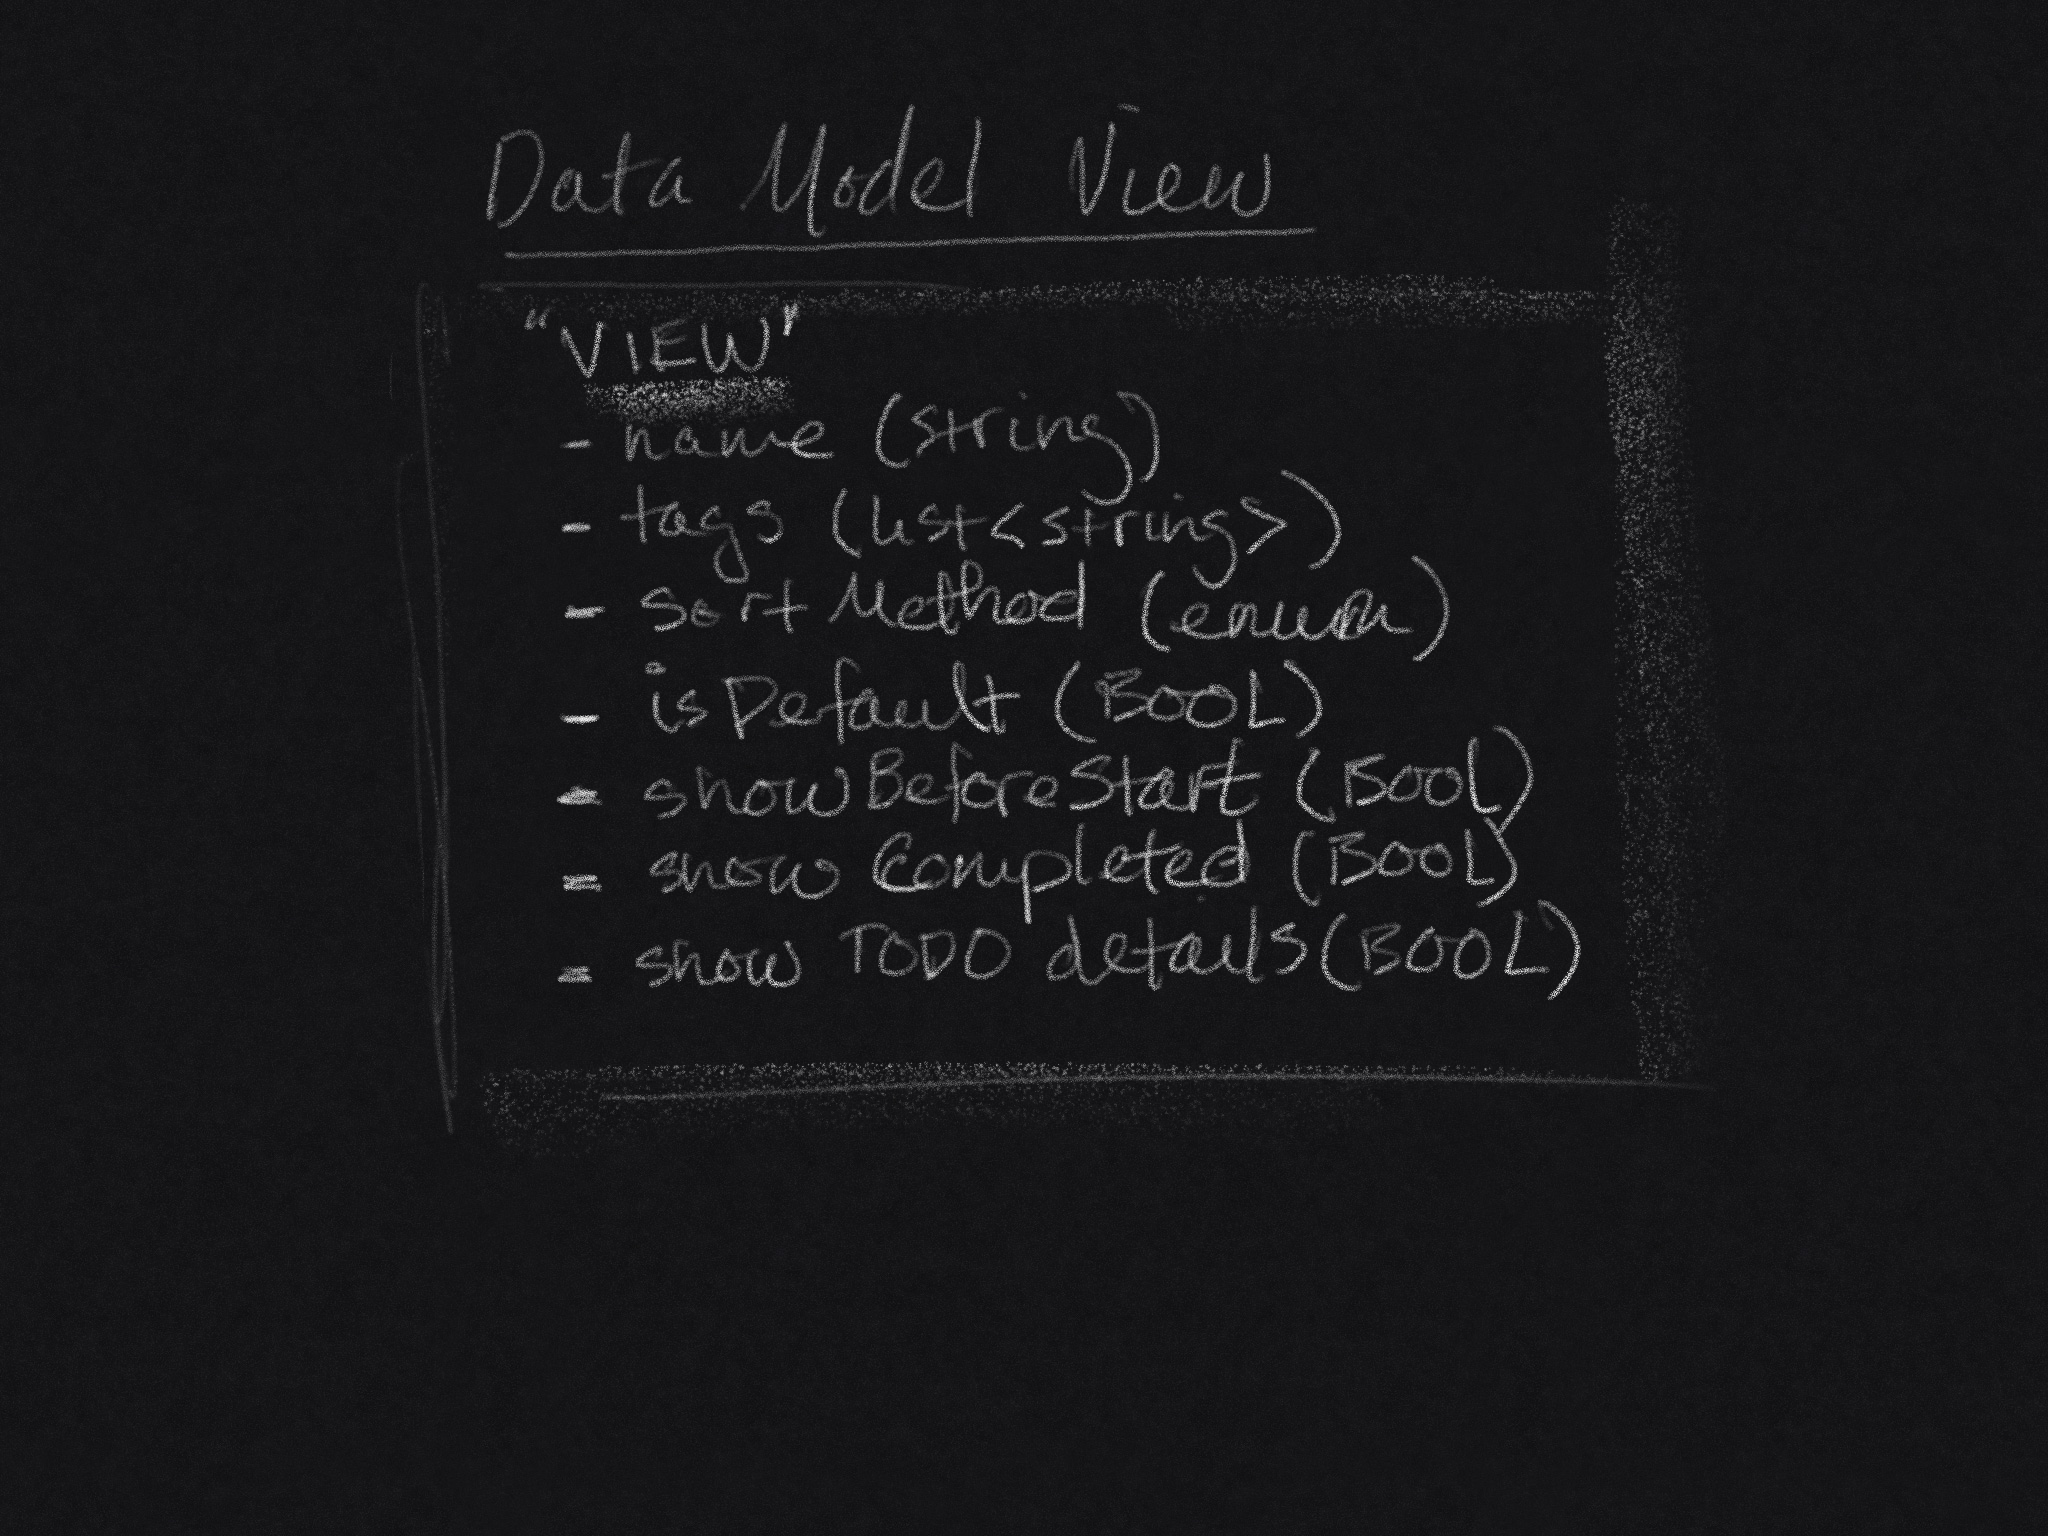 Data Model View
"VIEW"
- name (string)
- tags (list<string>)
- sort Method (enum)
- isDefault (BOOL)
- showBeforeStart (BOOL)
- show Completed (BOOL)
- show TODO details (BOOL)